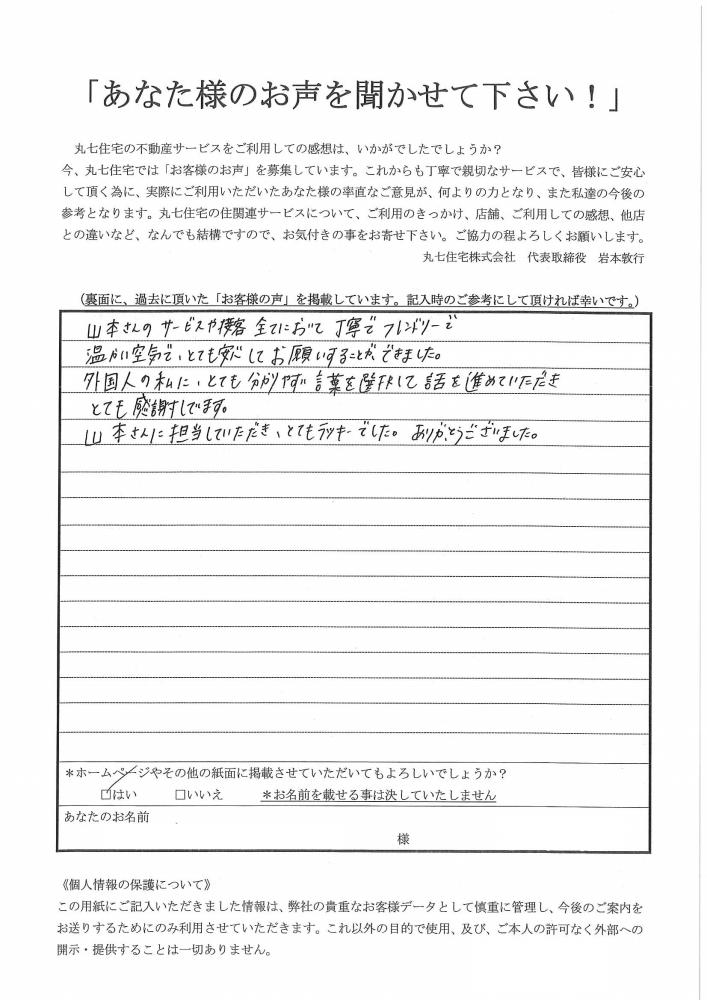 「あなた様のお声を聞かせて下さい！」
丸七住宅の不動産サービスをご利用しての感想は、いかがでしたでしょうか？
今、丸七住宅では「お客様のお声」を募集しています。これからも丁寧で親切なサービスで、皆様にご安心
して頂く為に、実際にご利用いただいたあなた様の率直なご意見が、何よりの力となり、また私達の今後の
参考となります。丸七住宅の住関連サービスについて、ご利用のきっかけ、店舗、ご利用しての感想、他店
との違いなど、なんでも結構ですので、お気付きの事をお寄せ下さい。ご協力の程よろしくお願いします。
丸七住宅株式会社　代表取締役　岩本敦行
（裏面に、過去に頂いた「お客様の声」を掲載しています。記入時のご参考にして頂ければ幸いです。）
山本さんのサービスや接客 全てにおいて 丁寧で フレンドリーで
温かい空気で、とても安心してお願いすることができました。
外国人の私に、とても分かりやすい言葉を選択して話を進めていただき
とても感謝しています。
山本さんに担当していただき、とてもラッキーでした。ありがとうございました。
＊ホームページやその他の紙面に掲載させていただいてもよろしいでしょうか？
□はい　□いいえ　＊お名前を載せる事は決していたしません
あなたのお名前
様
《個人情報の保護について》
この用紙にご記入いただきました情報は、弊社の貴重なお客様データとして慎重に管理し、今後のご案内を
お送りするためにのみ利用させていただきます。これ以外の目的で使用、及び、ご本人の許可なく外部への
開示・提供することは一切ありません。